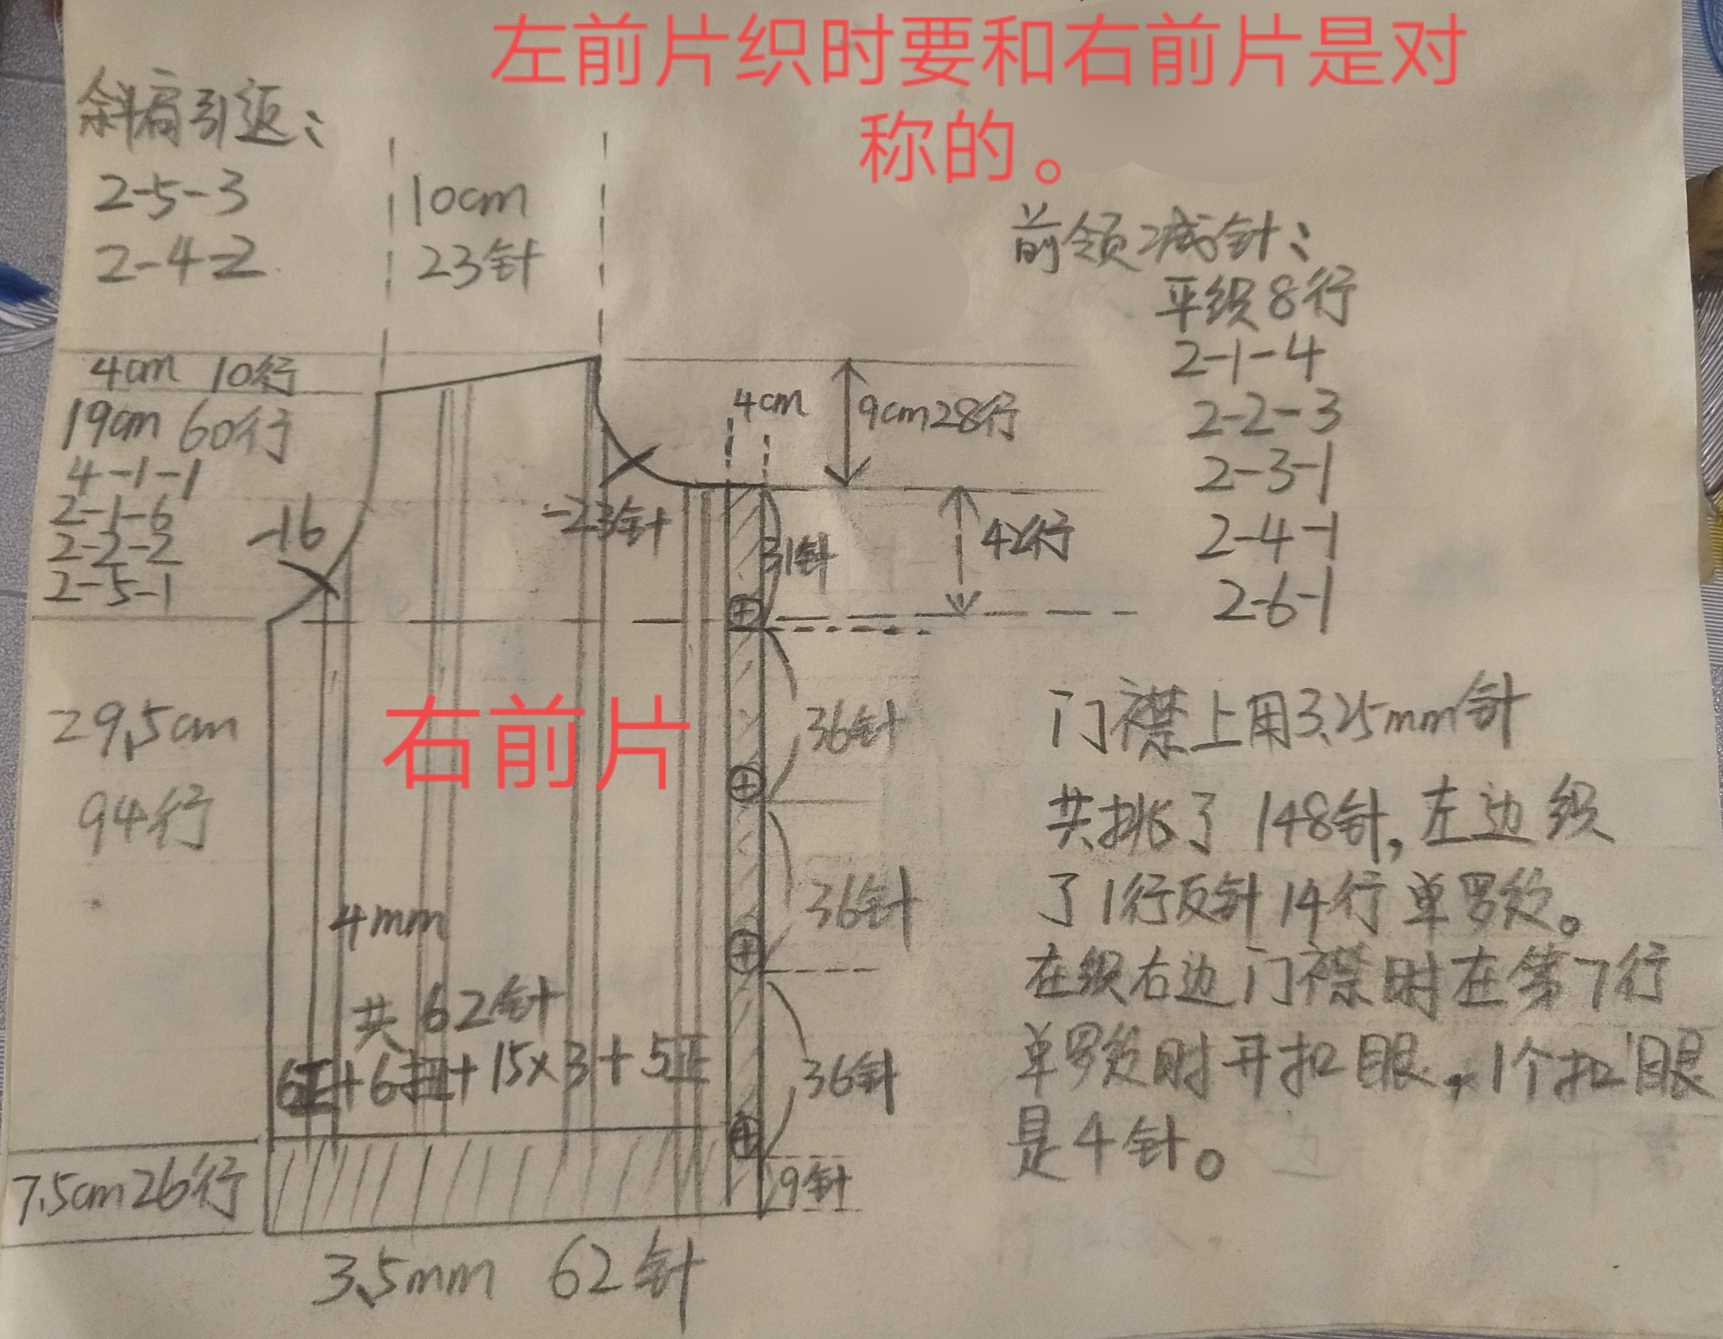 左前片织时要和右前片是对
称的。
斜肩引返:
2-5-3
2-4-2
10cm
23针
前领减针:
平织8行
2-1-4
2-2-3
2-3-1
2-4-1
2-6-1
4cm 10行
19cm 60行
4-1-1
2-1-6
2-2-2
2-5-1
-16
-23针
4cm
9cm28行
42行
31针
右前片
29.5cm
94行
36针
36针
36针
9针
4mm
共62针
6正+6扭+15×3+5正
7.5cm26行
3.5mm 62针
门襟上用3.25mm针
共挑了148针,左边织
了1行反针14行单罗纹。
在织右边门襟时在第7行
单罗纹时开扣眼,1个扣眼
是4针。